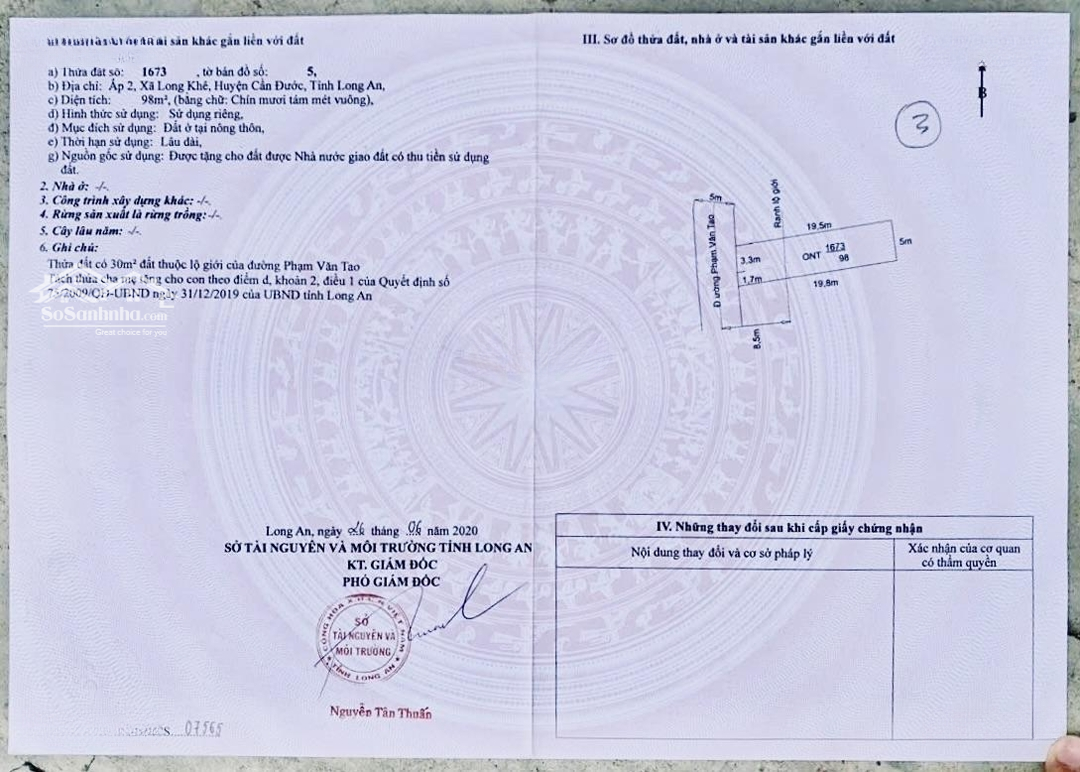 sản khác gắn liền với đất
a) Thửa đất số: 1673 , tờ bản đồ số: 5,
b) Địa chỉ: Ấp 2, Xã Long Khê, Huyện Cần Đước, Tỉnh Long An,
c) Diện tích: 98m², (bằng chữ: Chín mươi tám mét vuông),
d) Hình thức sử dụng: Sử dụng riêng,
đ) Mục đích sử dụng: Đất ở tại nông thôn,
e) Thời hạn sử dụng: Lâu dài,
g) Nguồn gốc sử dụng: Được tặng cho đất được Nhà nước giao đất có thu tiền sử dụng
đất.
2. Nhà ở: -/-.
3. Công trình xây dựng khác: -/-.
4. Rừng sản xuất là rừng trồng: -/-.
5. Cây lâu năm: -/-.
6. Ghi chú:
Thửa đất có 30m² đất thuộc lộ giới của đường Phạm Văn Tao
Tách thửa cha mẹ tặng cho con theo điểm d, khoản 2, điều 1 của Quyết định số
75/2009/QĐ-UBND ngày 31/12/2019 của UBND tỉnh Long An
SoSanhnha.com
Great choice for you
Long An, ngày 26 tháng 06 năm 2020
SỞ TÀI NGUYÊN VÀ MÔI TRƯỜNG TỈNH LONG AN
KT. GIÁM ĐỐC
PHÓ GIÁM ĐỐC
CỘNG HÒA X.H.C.N VIỆT NAM
SỞ
TÀI NGUYÊN VÀ
MÔI TRƯỜNG
TỈNH LONG AN
Nguyễn Tân Thuấn
07565
III. Sơ đồ thửa đất, nhà ở và tài sản khác gắn liền với đất
B
3
5m
Đường Phạm Văn Tao
Ranh lộ giới
19,5m
5m
3.3m
ONT 1673
98
1.7m
19,8m
8,5m
IV. Những thay đổi sau khi cấp giấy chứng nhận
Nội dung thay đổi và cơ sở pháp lý
Xác nhận của cơ quan
có thẩm quyền